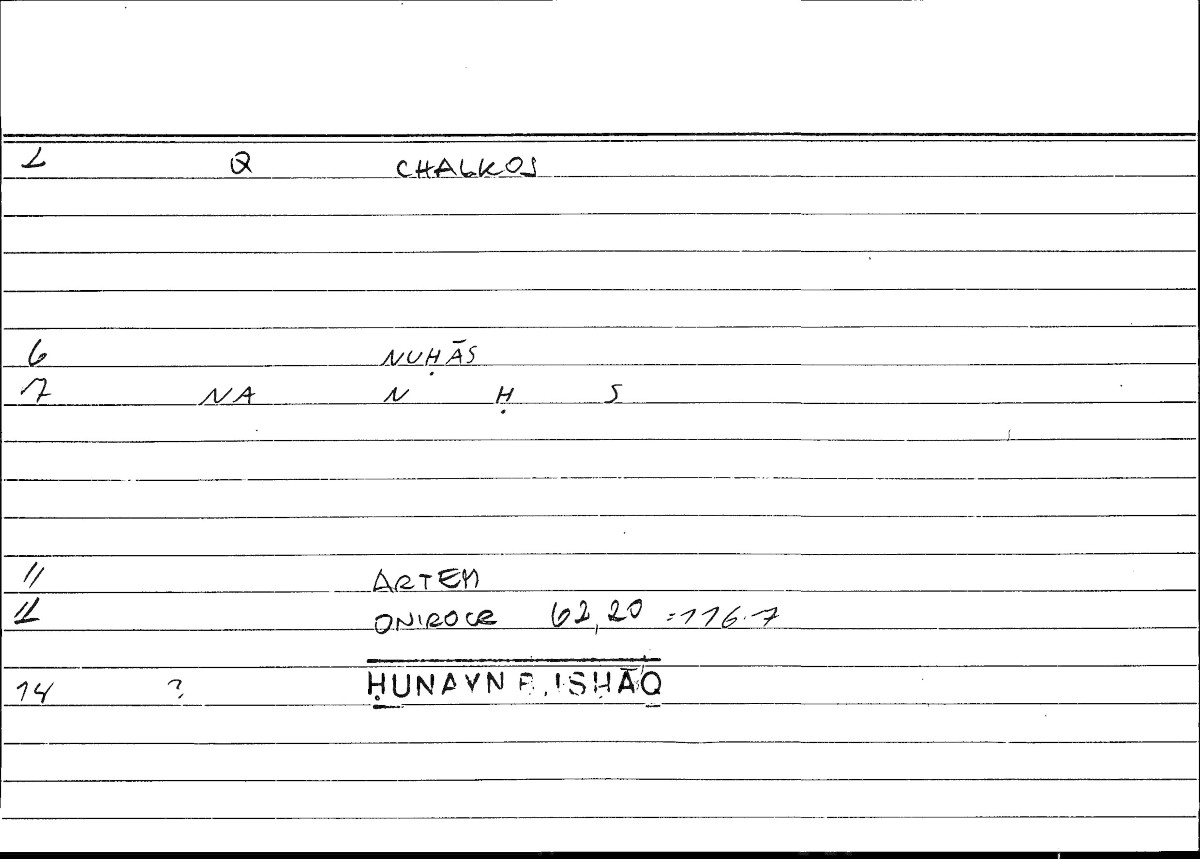 2 Q CHALKOS
6 NUḤĀS
7 NA N Ḥ S
11 ARTEM
12 ONIROCR 62,20 =116.7
14 ? ḤUNAYN B. ISḤĀQ